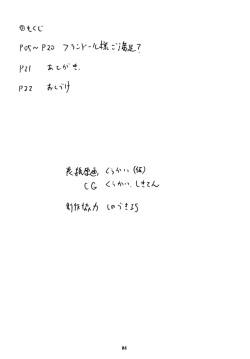 のもくじ
P05〜P20 フランドール様ご満足?
P21 あとがき
P22 おくづけ
表紙原画 くらかい(仮)
CG くらかい、しきさん
制作協力 しのづきよう
04